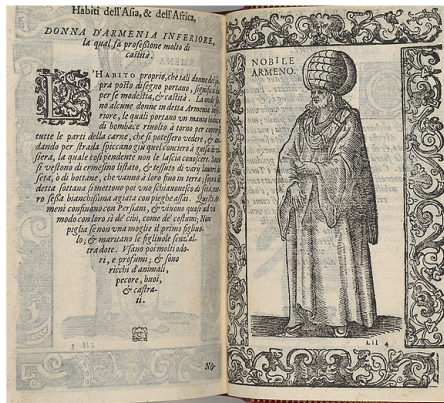 Habiti dell'Asia, & dell'Africa,
DONNA D'ARMENIA INFERIORE,
la qual fa professione molto di
castità.
L'HABITO proprio, che tali donne di so
pra posto disegno portano, significa da
per se modestia, & castità. La onde so
no alcune donne in detta Armenia in
feriore, le quali portano un manto bianco
di bombace rivolto a torno per coprir
tutte le parti della carne, che si potessero vedere, & an
dando per strada spiccano giù quel conciero à guisa di vi
siera, la quale così pendente non le lascia conoscere.
si vestono di ermesino listato, & tessuto di varij lavori di
seta, ò di bottane, che vanno à loro fino in terra; sopra
detta sottana si mettono poi uno schiavonesco di seta,
ro sessa bianchissima agiata con pieghe assai. Questi Ar
meni confinano con Persiani, & vivono quasi ad un
modo con loro sì de' cibi, come de' costumi; Non
piglia se non una moglie il primo figliuo
lo; & maritano le figliuole senz'al
tra dote. Usano poi molti odo
ri, e profumi; & sono
ricchi d'animali,
pecore, buoi,
& castra
ti.
No
NOBILE
ARMENO.
Lll 4